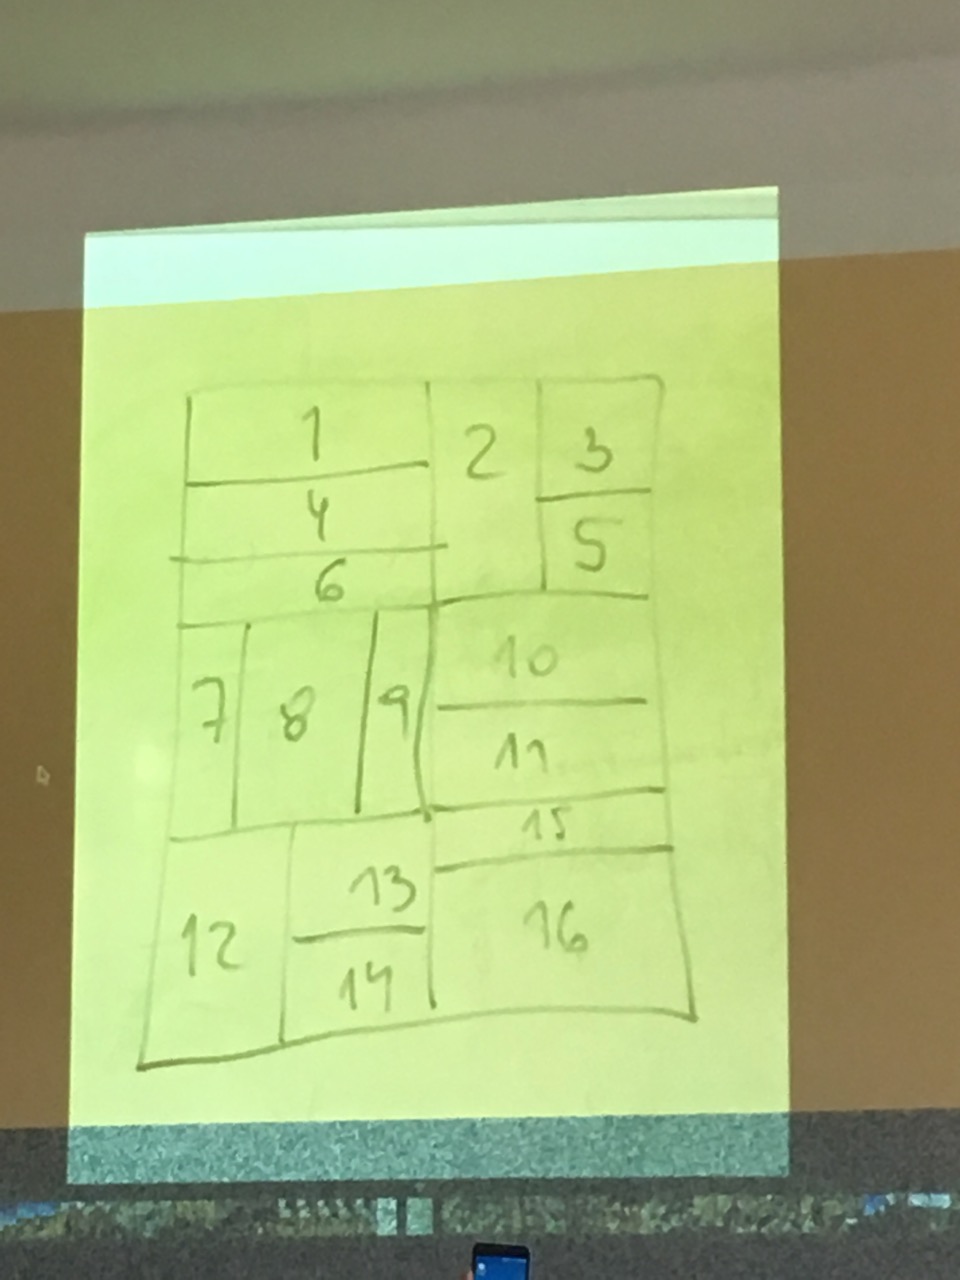 1
2
3
4
5
6
7
8
9
10
11
12
13
14
15
16